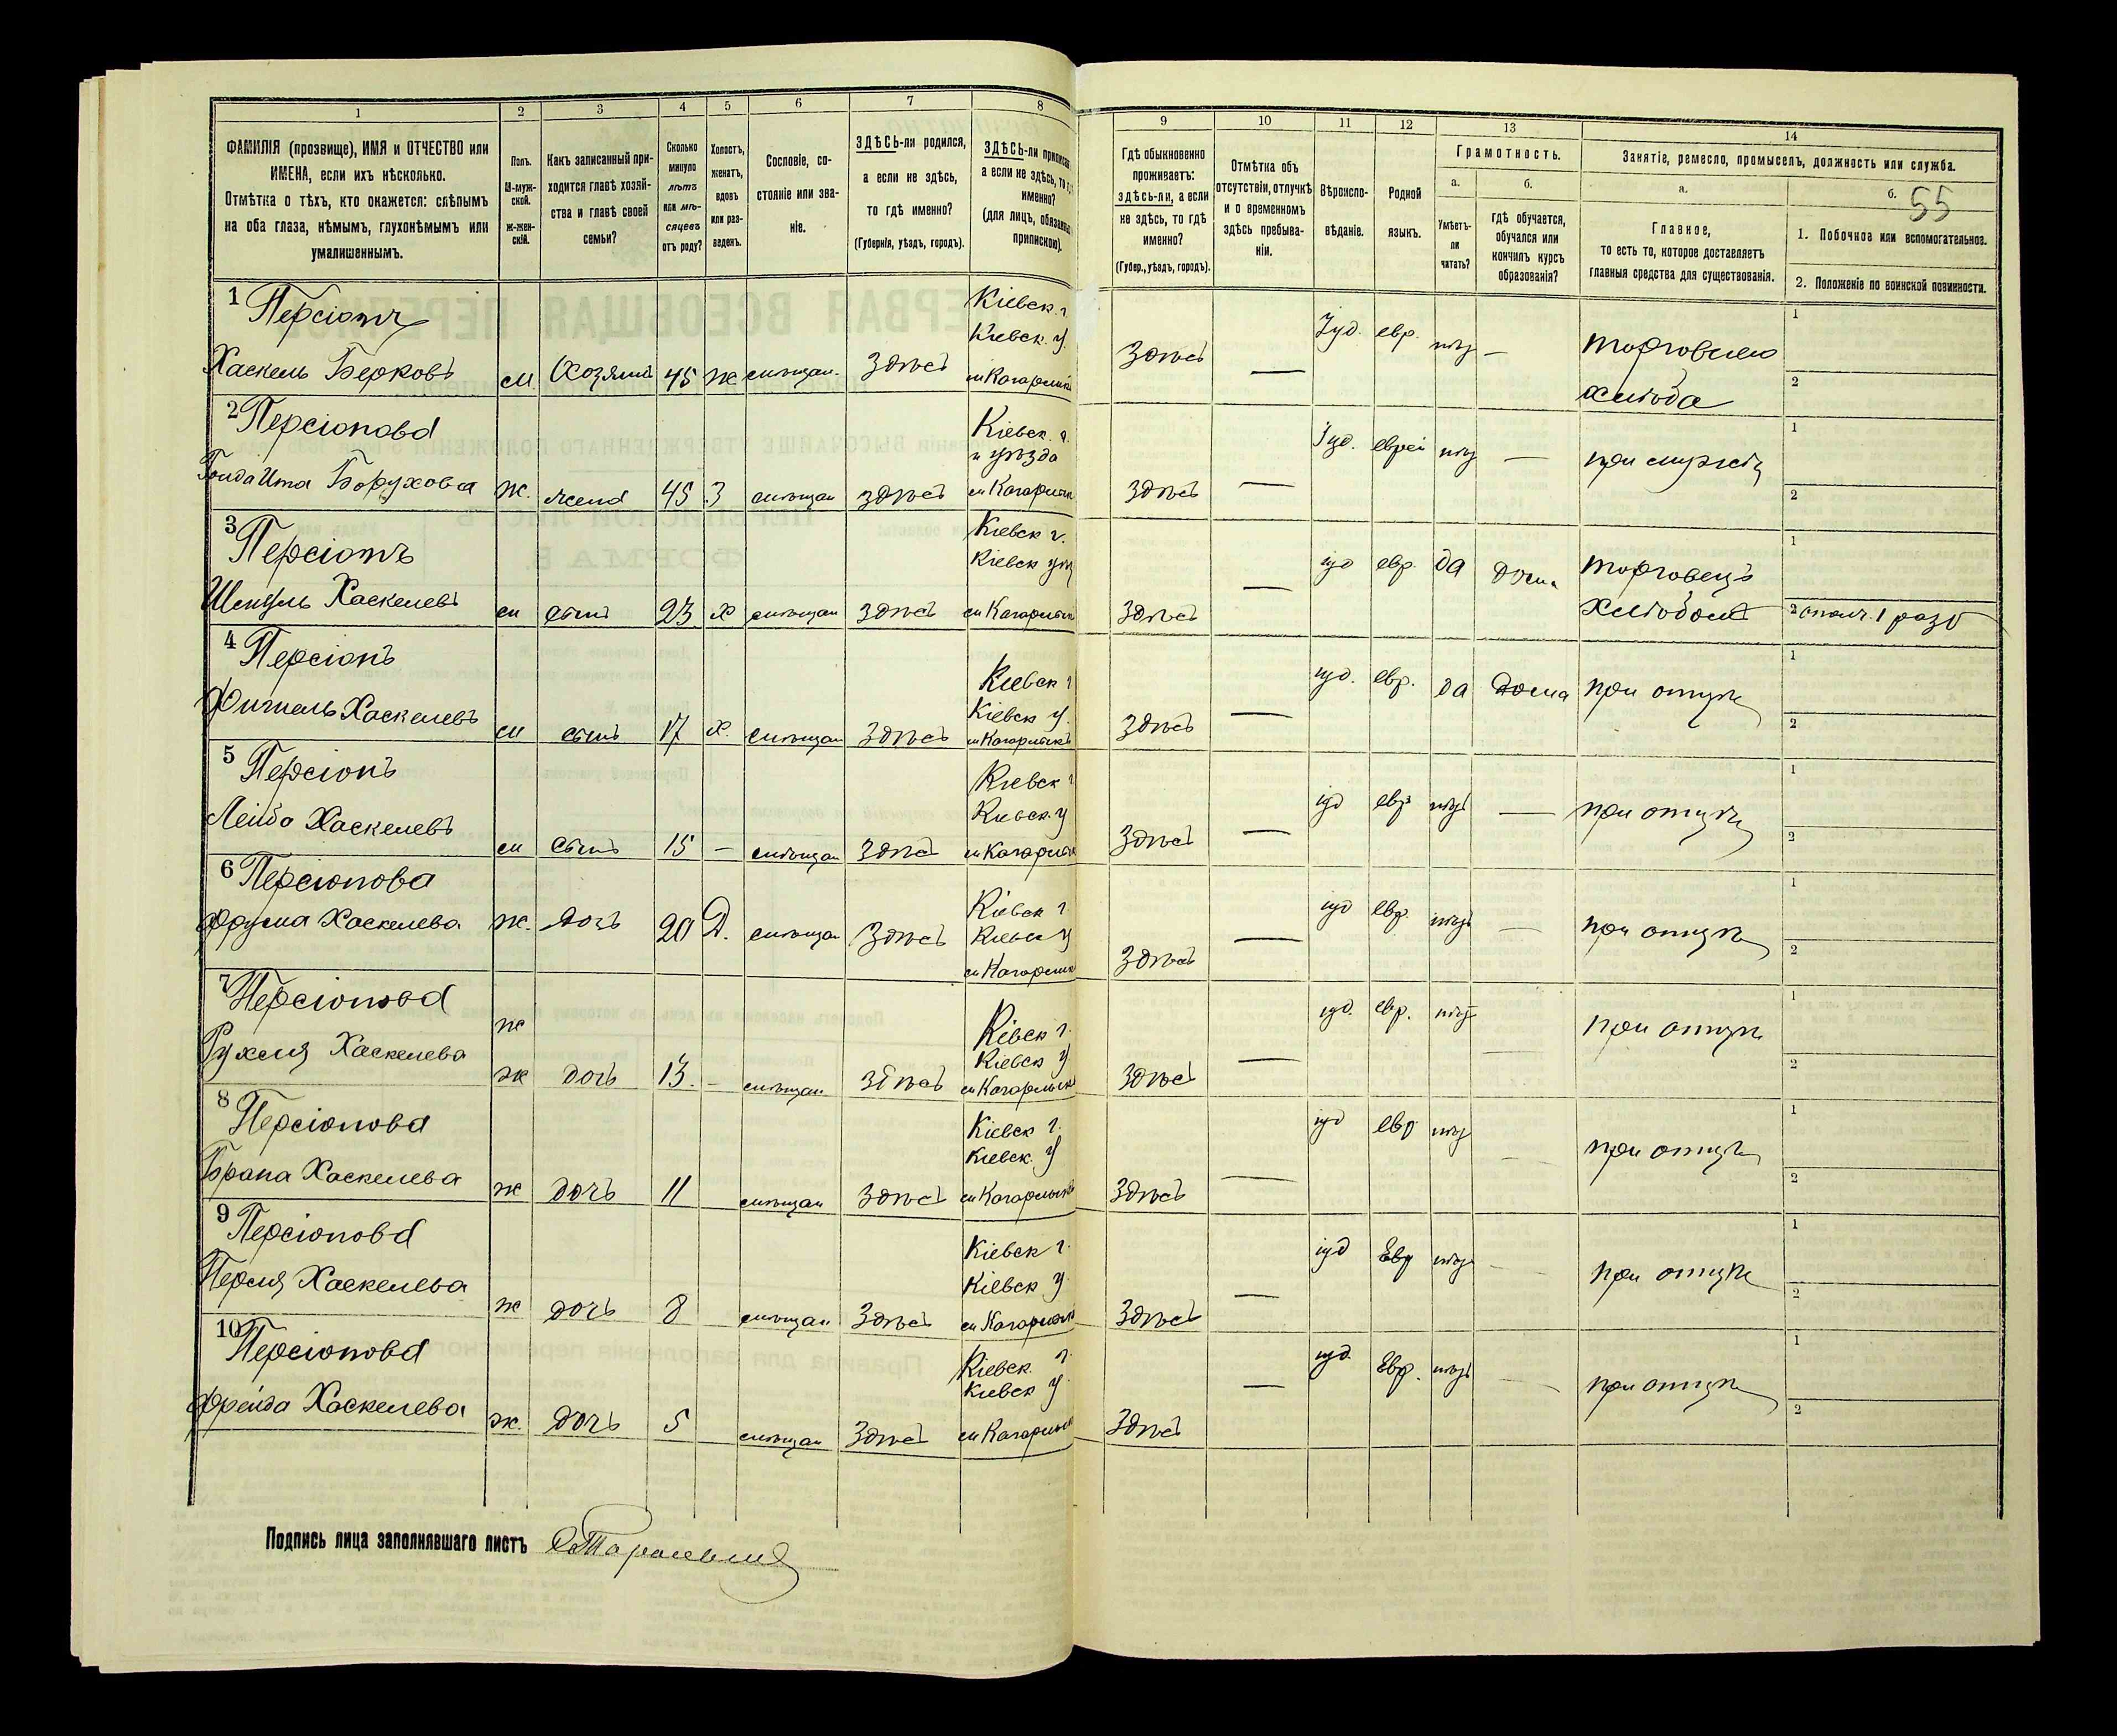 1 2 3 4 5 6 7 8 9 10 11 12 13 14
ФАМИЛІЯ (прозвище), ИМЯ и ОТЧЕСТВО или
ИМЕНА, если ихъ нѣсколько.
Отмѣтка о тѣхъ, кто окажется: слѣпымъ
на оба глаза, нѣмымъ, глухонѣмымъ или
умалишеннымъ.
Полъ.
М-муж-
ской.
Ж-жен-
скій.
Какъ записанный при-
ходится главѣ хозяй-
ства и главѣ своей
семьи?
Сколько
минуло
лѣтъ
или мѣ-
сяцевъ
отъ роду?
Холостъ,
женатъ,
вдовъ
или раз-
веденъ.
Сословіе, со-
стояніе или зва-
ніе.
ЗДѢСЬ-ли родился,
а если не здѣсь,
то гдѣ именно?
(Губернія, уѣздъ, городъ).
ЗДѢСЬ-ли
а если не здѣсь,
именно?
(для лицъ,
припискою).
Гдѣ обыкновенно
проживаетъ:
здѣсь-ли, а если
не здѣсь, то гдѣ
именно?
(Губер., уѣздъ, городъ).
Отмѣтка объ
отсутствіи, отлучкѣ
и о временномъ
здѣсь пребыва-
ніи.
Вѣроиспо-
вѣданіе.
Родной
языкъ.
Грамотность.
а.
Умѣетъ-
ли
читать?
б.
Гдѣ обучается,
обучался или
кончилъ курсъ
образованія?
Занятіе, ремесло, промыселъ, должность или служба.
а.
Главное,
то есть то, которое доставляетъ
главныя средства для существованія.
б. 55
1. Побочное или вспомогательное.
2. Положеніе по воинской повинности.
1 Персіонъ Кіевск. г. Іуд. евр. нѣт — торговлею 1
Кіевск. у.
Хаскель Берковъ м. Хозяинъ 45 ж мѣщан. Здѣсь м Кагарлык Здѣсь — хлѣба 2
2 Персіонова Кіевск. г. Іуд. еврей нѣт — при мужѣ 1
и уѣзда
Боруховна ж. жена 45 З мѣщан здѣсь м Кагарлык здѣсь — 2
3 Персіонъ Кіевск г. іуд евр. да дома торговецъ 1
Кіевск у
Хаскелевъ м сынъ 23 х мѣщан здѣсь м Кагарлык Здѣсь — хлѣбомъ 2 ополч. 1 разр
4 Персіонъ Кіевск г іуд. евр. да дома при отцѣ 1
Кіевск у.
Фишель Хаскелевъ м сынъ 17 х. мѣщан Здѣсь м Кагарлыкъ Здѣсь — 2
5 Персіонъ Кіевск г іуд евр нѣт — при отцѣ 1
Кіевск. у
Лейба Хаскелевъ м Сынъ 15 — мѣщан Здѣсь м Кагарлык Здѣсь — 2
6 Персіонова Кіевск г іуд евр. нѣтъ — при отцѣ 1
Фрума Хаскелева ж. дочь 20 Д. мѣщан Здѣсь Кіевск у
м Кагарлык Здѣсь — 2
7 Персіонова Кіевск г. іуд. евр. нѣт при отцѣ 1
ж
Рухля Хаскелева Кіевск у
ж дочь 13. — мѣщан здѣсь м Кагарлык Здѣсь — 2
8 Персіонова Кіевск г. іуд евр нѣт — при отцѣ 1
Кіевск. у
Брана Хаскелева ж дочь 11 мѣщан Здѣсь м Кагарлык Здѣсь — 2
9 Персіонова Кіевск г. іуд Евр нѣт — при отцѣ 1
Кіевск у.
Перля Хаскелева ж дочь 8 мѣщан Здѣсь м Кагарлык Здѣсь — 2
10 Персіонова Кіевск. г. іуд. Евр. нѣтъ — при отцѣ 1
Кіевск у.
Фрейда Хаскелева ж. дочь 5 мѣщан Здѣсь м Кагарлык Здѣсь — 2
Подпись лица заполнявшаго листъ